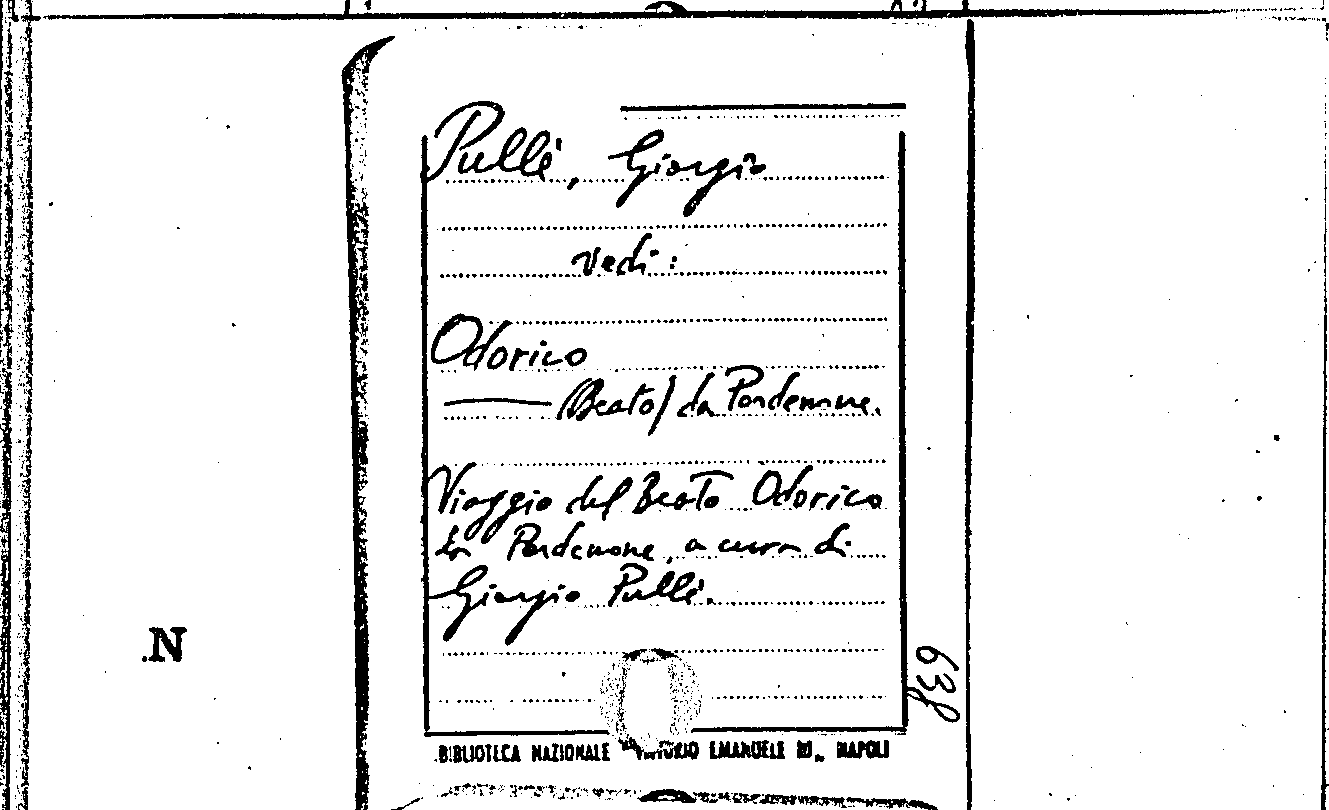 Pullè, Giorgio
vedi:
Odorico
—— (Beato) da Pordenone.
Viaggio del Beato Odorico
da Pordenone, a cura di
Giorgio Pullè.
BIBLIOTECA NAZIONALE "VITTORIO EMANUELE III" NAPOLI
638
N